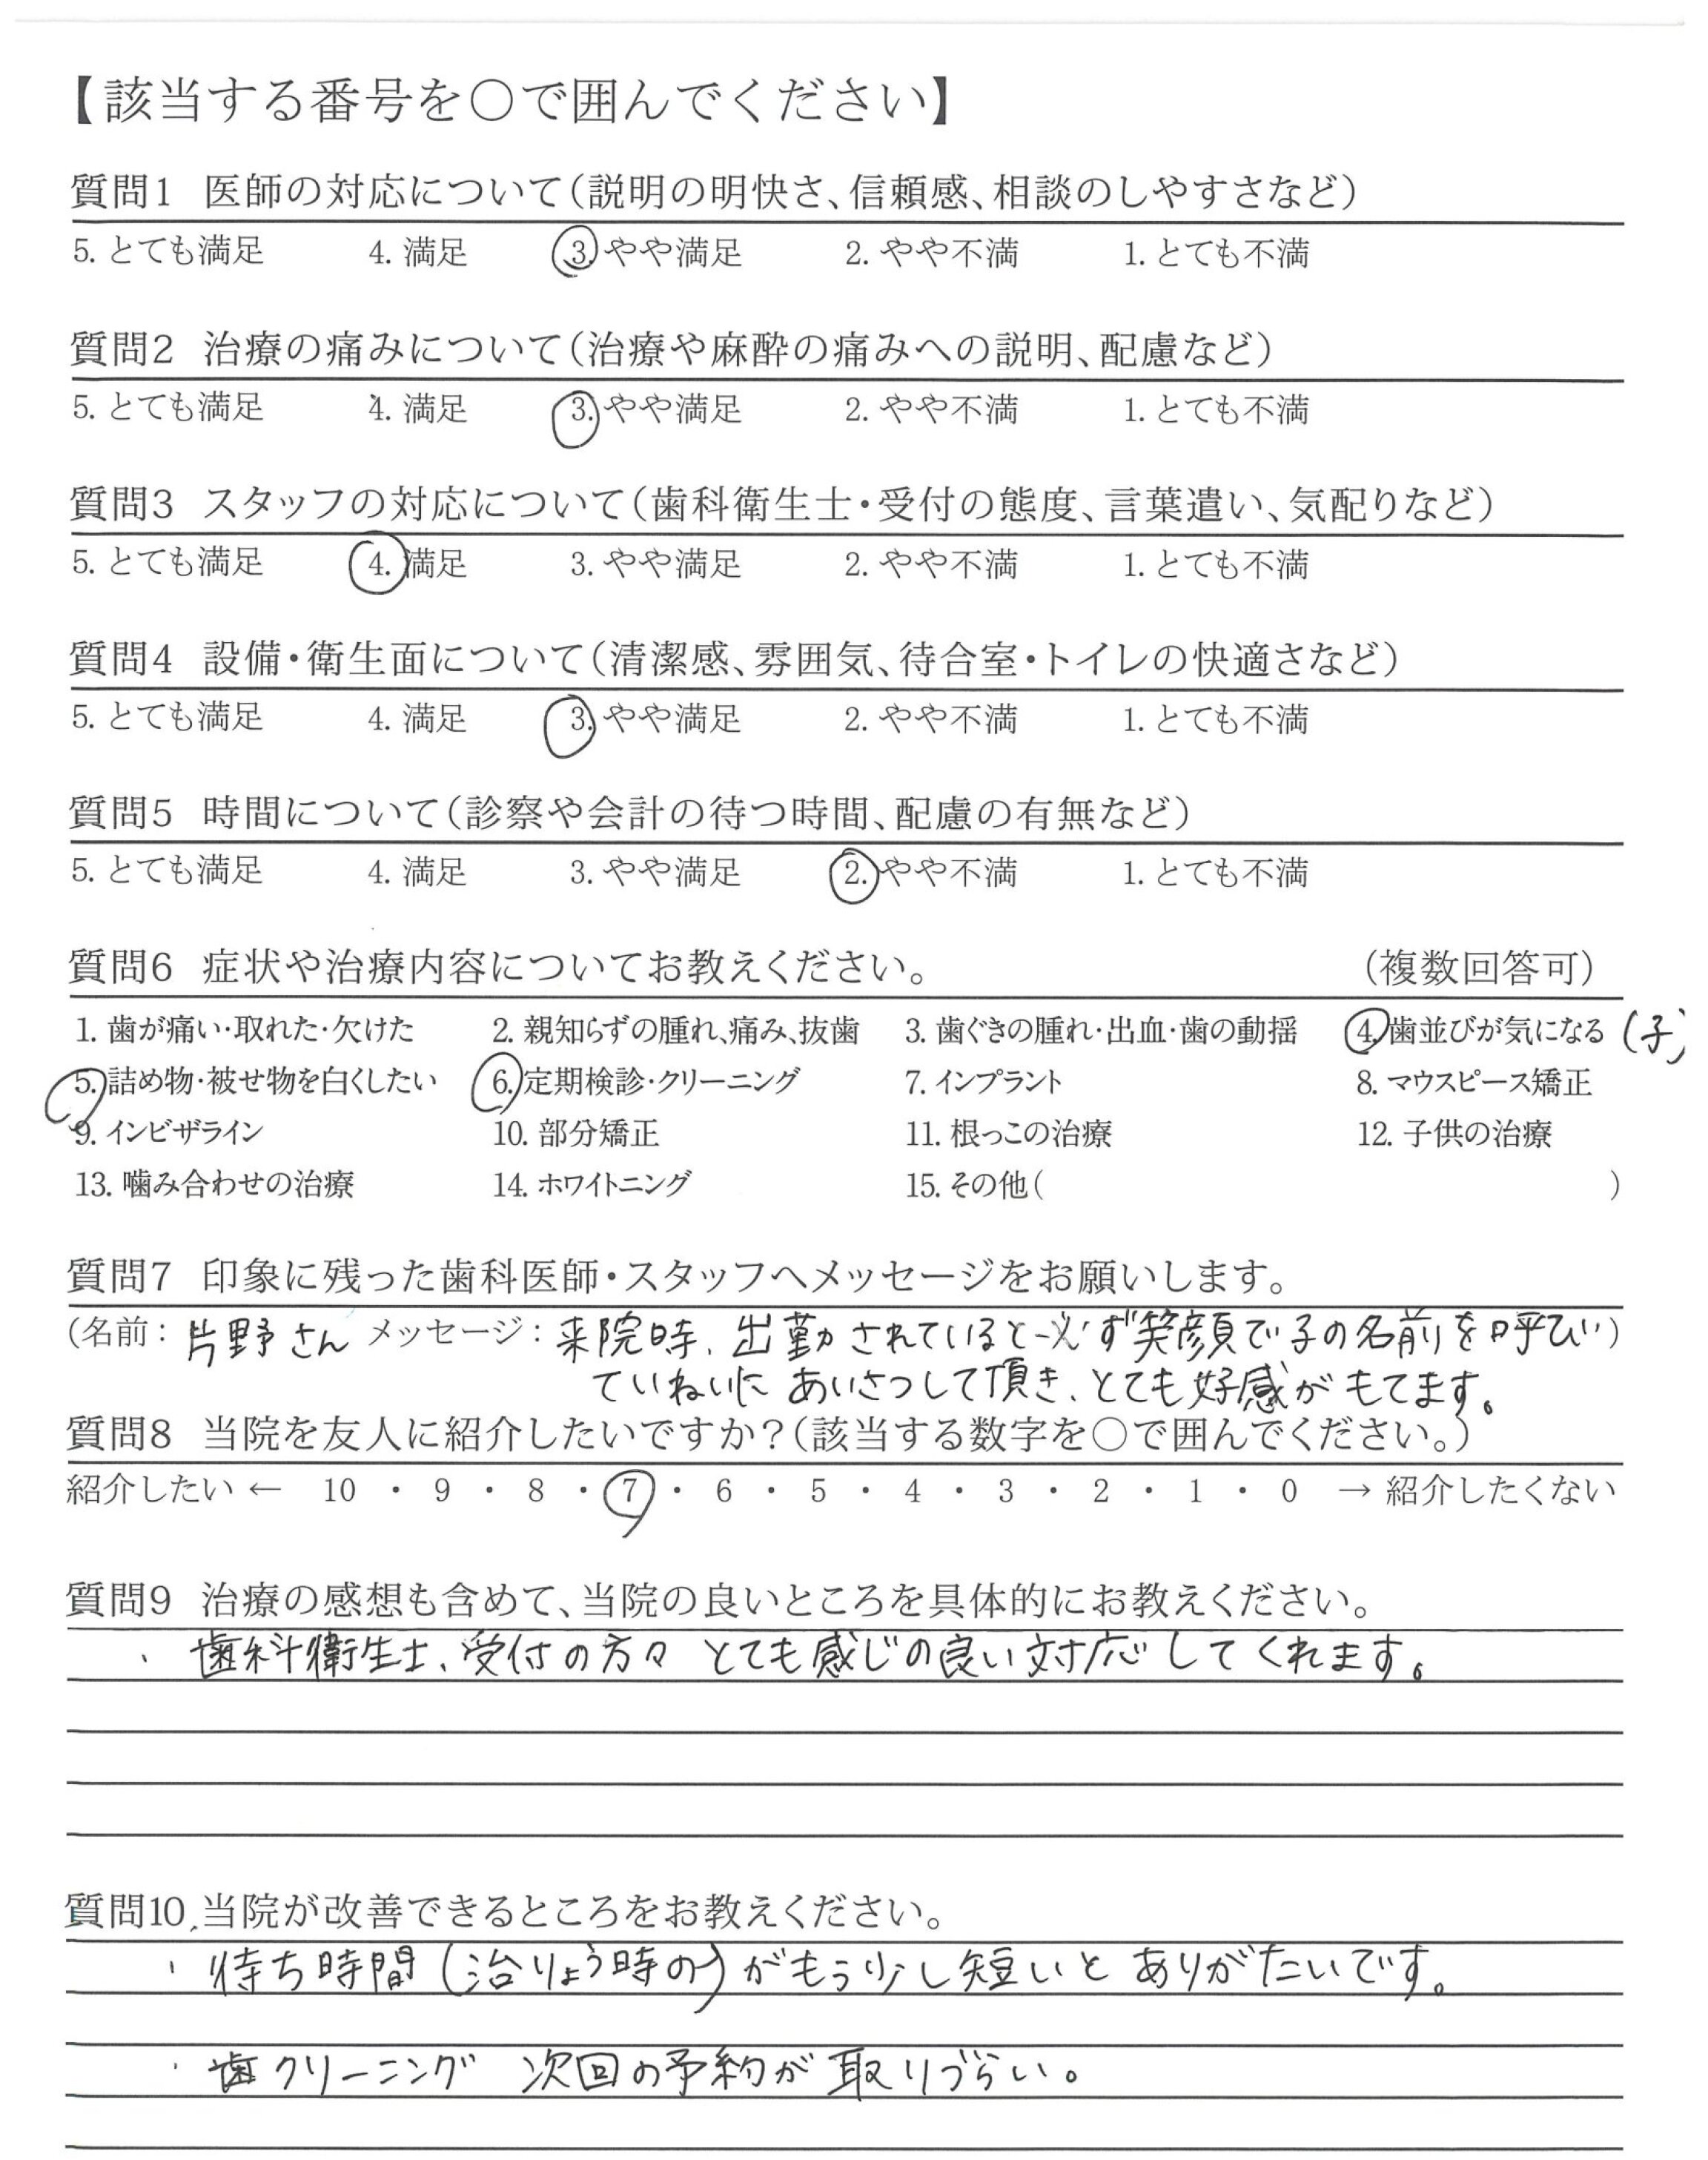 【該当する番号を○で囲んでください】
質問1 医師の対応について(説明の明快さ、信頼感、相談のしやすさなど)
5. とても満足 4. 満足 3. やや満足 2. やや不満 1. とても不満
質問2 治療の痛みについて(治療や麻酔の痛みへの説明、配慮など)
5. とても満足 4. 満足 3. やや満足 2. やや不満 1. とても不満
質問3 スタッフの対応について(歯科衛生士・受付の態度、言葉遣い、気配りなど)
5. とても満足 4. 満足 3. やや満足 2. やや不満 1. とても不満
質問4 設備・衛生面について(清潔感、雰囲気、待合室・トイレの快適さなど)
5. とても満足 4. 満足 3. やや満足 2. やや不満 1. とても不満
質問5 時間について(診察や会計の待つ時間、配慮の有無など)
5. とても満足 4. 満足 3. やや満足 2. やや不満 1. とても不満
質問6 症状や治療内容についてお教えください。 (複数回答可)
1. 歯が痛い・取れた・欠けた 2. 親知らずの腫れ、痛み、抜歯 3. 歯ぐきの腫れ・出血・歯の動揺 4. 歯並びが気になる (子)
5. 詰め物・被せ物を白くしたい 6. 定期検診・クリーニング 7. インプラント 8. マウスピース矯正
9. インビザライン 10. 部分矯正 11. 根っこの治療 12. 子供の治療
13. 噛み合わせの治療 14. ホワイトニング 15. その他( )
質問7 印象に残った歯科医師・スタッフへメッセージをお願いします。
(名前: 片野さん メッセージ: 来院時、出勤されていると必ず笑顔で子の名前を呼び)
ていねいに あいさつして頂き、とても好感がもてます。
質問8 当院を友人に紹介したいですか?(該当する数字を○で囲んでください。)
紹介したい ← 10 ・ 9 ・ 8 ・ 7 ・ 6 ・ 5 ・ 4 ・ 3 ・ 2 ・ 1 ・ 0 → 紹介したくない
質問9 治療の感想も含めて、当院の良いところを具体的にお教えください。
、歯科衛生士、受付の方々 とても感じの良い対応してくれます。
質問10 当院が改善できるところをお教えください。
・待ち時間(治りょう時の)がもう少し短いと ありがたいです。
・歯クリーニング 次回の予約が取りづらい。